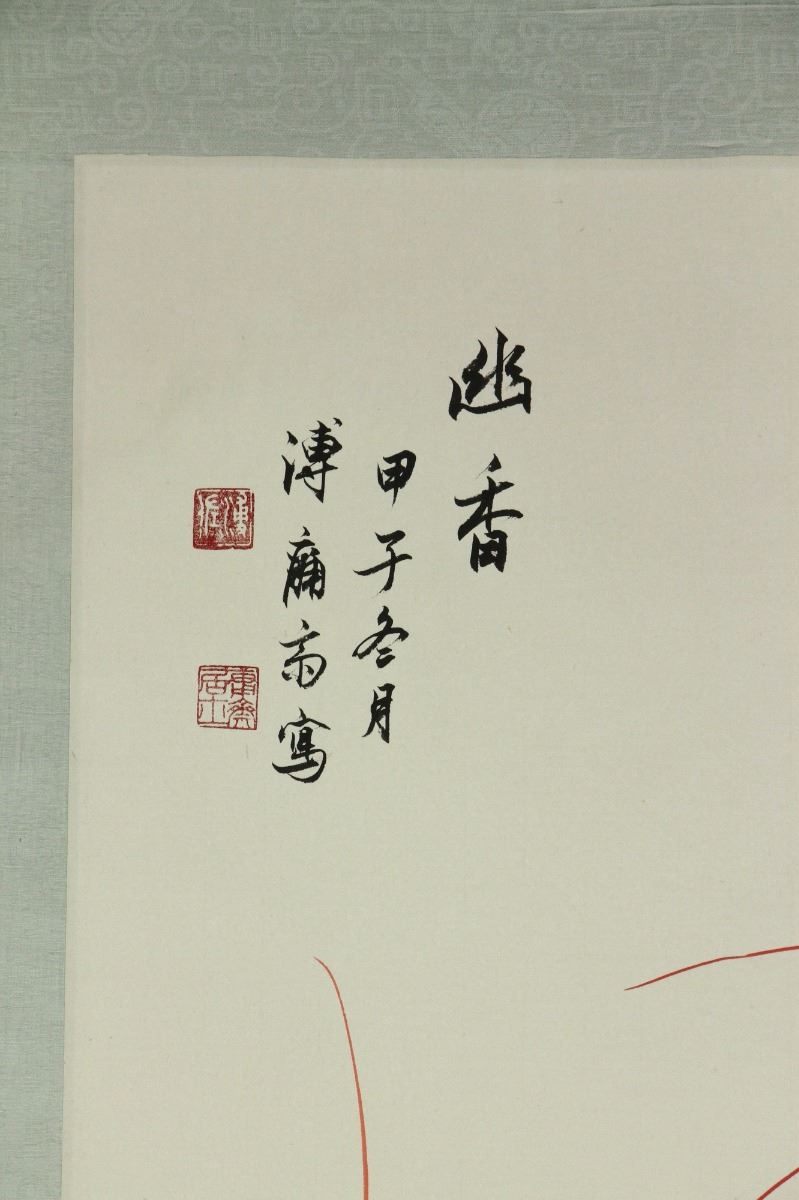 幽香
甲子冬月
溥庸斋寫
庸齋居士